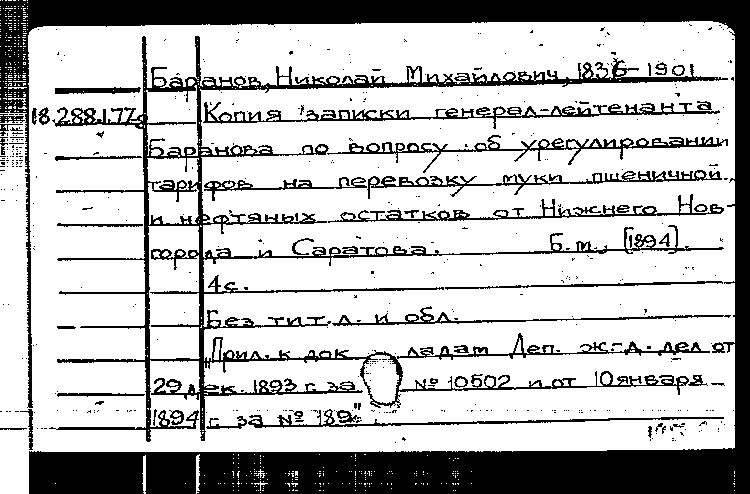 Баранов, Николай Михайлович, 1836-1901
18.288.1.77г Копия записки генерал-лейтенанта
Баранова по вопросу об урегулировании
тарифов на перевозку муки пшеничной
и нефтяных остатков от Нижнего Нов-
города и Саратова. Б.м., [1894].
4с.
Без тит.л. и обл.
"Прил. к док ладам Деп. ж.-д. дел от
29 дек. 1893 г. за № 10502 и от 10 января
1894 г. за № 189".